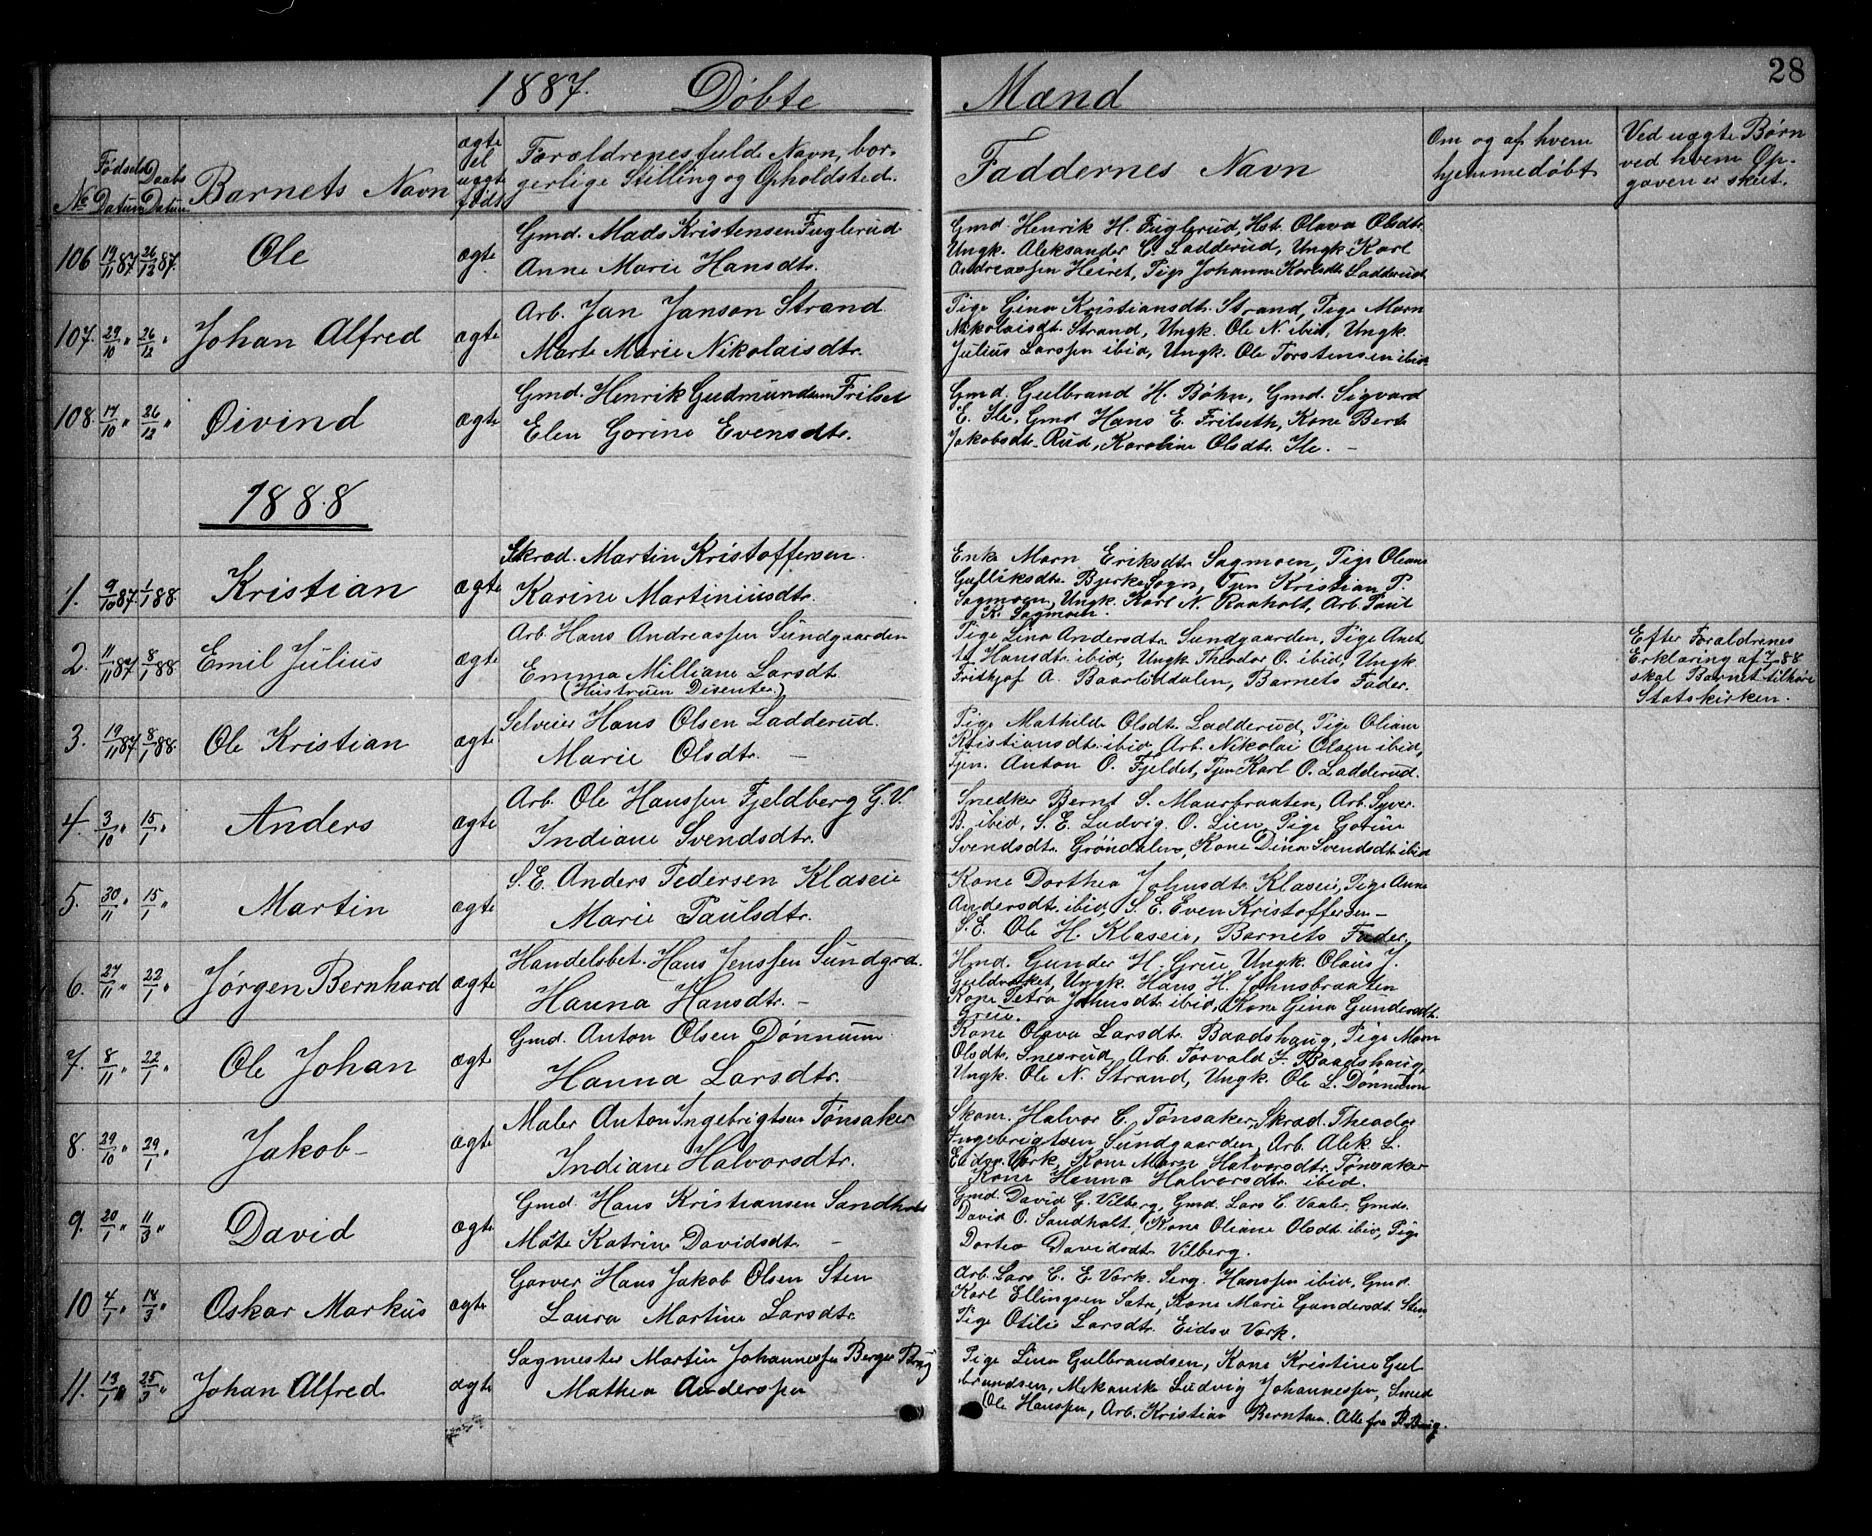 28
1887. Døbte Mænd
No
Fødsels Datum
Daabs Datum
Barnets Navn
ægte el uægte født
Forældrenes fulde Navn, bor-
gerlige Stilling og Opholdsted.
Faddernes Navn
Om og af hvem
hjemmedøbt
Ved uægte Børn
ved hvem Op-
gaven er skeet.
106 19/11 87 26/12 87. Ole ægte
Gmd. Mads Kristensen Fuglerud
Anne Marie Hansdtr.
Gmd Henrik H. Fuglerud, Hst. Olava Olsdtr.
Ungk. Aleksander C. Ladderud, Ungk Karl
Andreassen Heiret, Pige Johanne Karlsdtr Ladderud
107. 29/10 " 26/12 " Johan Alfred ægte
Arb. Jan Janson Strand
Marte Marie Nikolaisdtr.
Pige Gina Kristiansdtr. Strand, Pige Marn
Nikolaisdtr Strand, Ungk. Ole N. ibid, Ungk.
Julius Larssen ibid, Ungk. Ole Torstensen ibid
108. 17/10 " 26/12 " Øivind ægte
Gmd. Henrik Gudmundsen Frilset
Elen Gorine Evensdtr.
Gmd. Gulbrand H. Bøhn, Gmd. Sigvard
E. Ile, Gmd Hans E. Frilseth, Kone Berte
Jakobsdtr. Rud, Karoline Olsdtr. Ile. -
1888
1. 9/10 87. 1/1 88. Kristian ægte
Skræd. Martin Kristoffersen.
Karine Martiniusdtr.
Enke Marn Eriksdtr Sagmoen, Pige Oleane
Gulliksdtr Bjerke Sogn, Tjen Kristian P.
Sagmoen, Ungk. Karl N. Raaholt, Arb. Paul
K. Sagmoen.
2. 11/11 87 8/1 88 Emil Julius ægte
Arb. Hans Andreassen Sundgaarden
Emma Milliane Larsdt.
(Hustruen Disenter)
Pige Lina Andersdtr Sundgaarden, Pige Anet
te Hansdtr ibid, Ungk. Theodor O. ibid, Ungk
Fritkjof A. Baarliddalen, Barnets Fader.
Efter Forældrenes
Erklæring af 7/1 88
skal Barnet tilhøre
Statskirken.
3. 19/11 87 8/1 88. Ole Kristian ægte
Selveier Hans Olsen Ladderud.
Marie Olsdtr. -
Pige Mathilde Olsdtr. Ladderud, Pige Oliane
Kristiansdtr. ibid, Arb. Nikolai Olsen ibid,
Tjen. Anton O. Fjeldet, Tjen Karl O. Ladderud.
4. 3/10 " 15/1 " Anders ægte
Arb. Ole Hanssen Fjeldberg G. V.
Indiane Svendsdtr.
Snedker Bernt S. Maurbraaten, Arb. Syver
B. ibid, S. E. Ludvig O. Lien, Pige Gorine
Svendsdtr. Grøndalen, Kone Dina Svendsdtr ibid
5. 30/11 " 15/1 " Martin ægte
S. E. Anders Pedersen Klaseie
Marie Paulsdtr.
Kone Dorthea Johnsdtr. Klaseie, Pige Anne
Andersdtr. ibid, S. E. Even Kristoffersen -
S. E. Ole H. Klaseie, Barnets Fader.
6. 27/11 " 22/1 " Jørgen Bernhard ægte
Handelsbet. Hans Jenssen Sundgrd.
Hanna Hansdtr. -
Hmd. Gunder H. Greie, Ungk. Olaus J.
Guldvaket, Ungk. Hans H. Johnsbraaten
Kone Petra Johnsdtr ibid, Kone Gina Gundersdtr.
Greie.
7. 8/11 " 22/1 " Ole Johan ægte
Gmd. Anton Olsen Dønnum
Hanna Larsdtr.
Kone Olava Larsdtr. Baadshaug, Pige Marn
Olsdtr. Snesrud, Arb. Torvald J. Baadshaug,
Ungk. Ole N. Strand, Ungk. Ole L. Dønnum
8. 29/10 " 29/1 " Jakob - ægte
Maler Anton Ingebrigtsen Tønsaker
Indiane Halvorsdtr.
Skom. Halvor C. Tønsaker, Skræd. Theodor
Ingebrigtsen Sundgaarden, Arb. Alek L.
Eidsv. Værk, Kone Marn Halvorsdtr. Tønsaker
Kone Hanna Halvorsdtr ibid.
9. 20/1 " 11/3 " David ægte
Gmd. Hans Kristiansen Sandholt
Mate Katrine Davidsdtr. -
Gmd. David G. Vilberg, Gmd. Lars C. Vaaler, Gmds.
David O. Sandholt, Kone Oliane Olsdtr ibid, Pige
Dortea Davidsdtr. Vilberg.
10 4/1 " 18/3 " Oskar Markus ægte
Garver Hans Jakob Olsen Sten
Laura Martine Larsdtr.
Arb. Lars C. E. Værk. Serg. Hanssen ibid, Gmd.
Karl Ellingsen Satre, Kone Marie Gundersdt. Sten,
Pige Otilie Larsdtr. Eidsv Værk.
11. 13/1 " 25/3 " Johan Alfred ægte
Sagmester Martin Johannessen Berger Brug
Mathea Anderssen
Pige Lina Gulbrandsen, Kone Kristine Gul
brandsen, Mekanik Ludvig Johannessen, Smed
Ole Hanssen, Arb. Kristian Berntsen. Alle fra B. Brug.